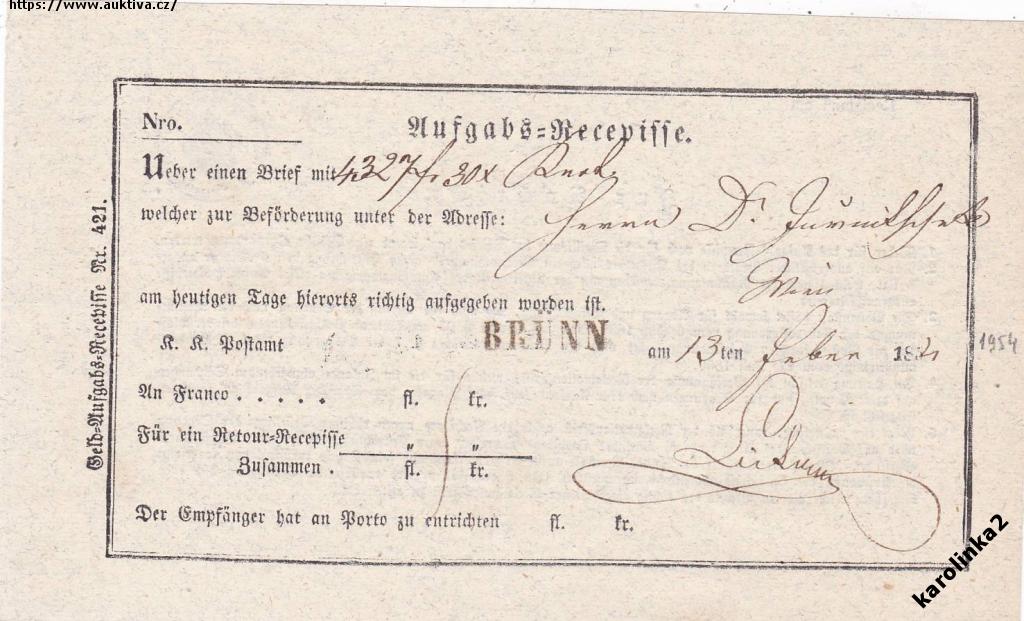 https://www.auktiva.cz/
Nro.
Aufgabs=Recepisse.
Ueber einen Brief mit 4327 f 30 x
welcher zur Beförderung unter der Adresse: Herrn Dr.
Wien
am heutigen Tage hierorts richtig aufgegeben worden ist.
K. K. Postamt BRÜNN am 13ten Feber 185
1954
An Franco . . . . . fl. kr.
Für ein Retour=Recepisse " "
Zusammen . fl. kr.
Der Empfänger hat an Porto zu entrichten fl. kr.
Geld=Aufgabs=Recepisse Nr. 421.
karolinka2